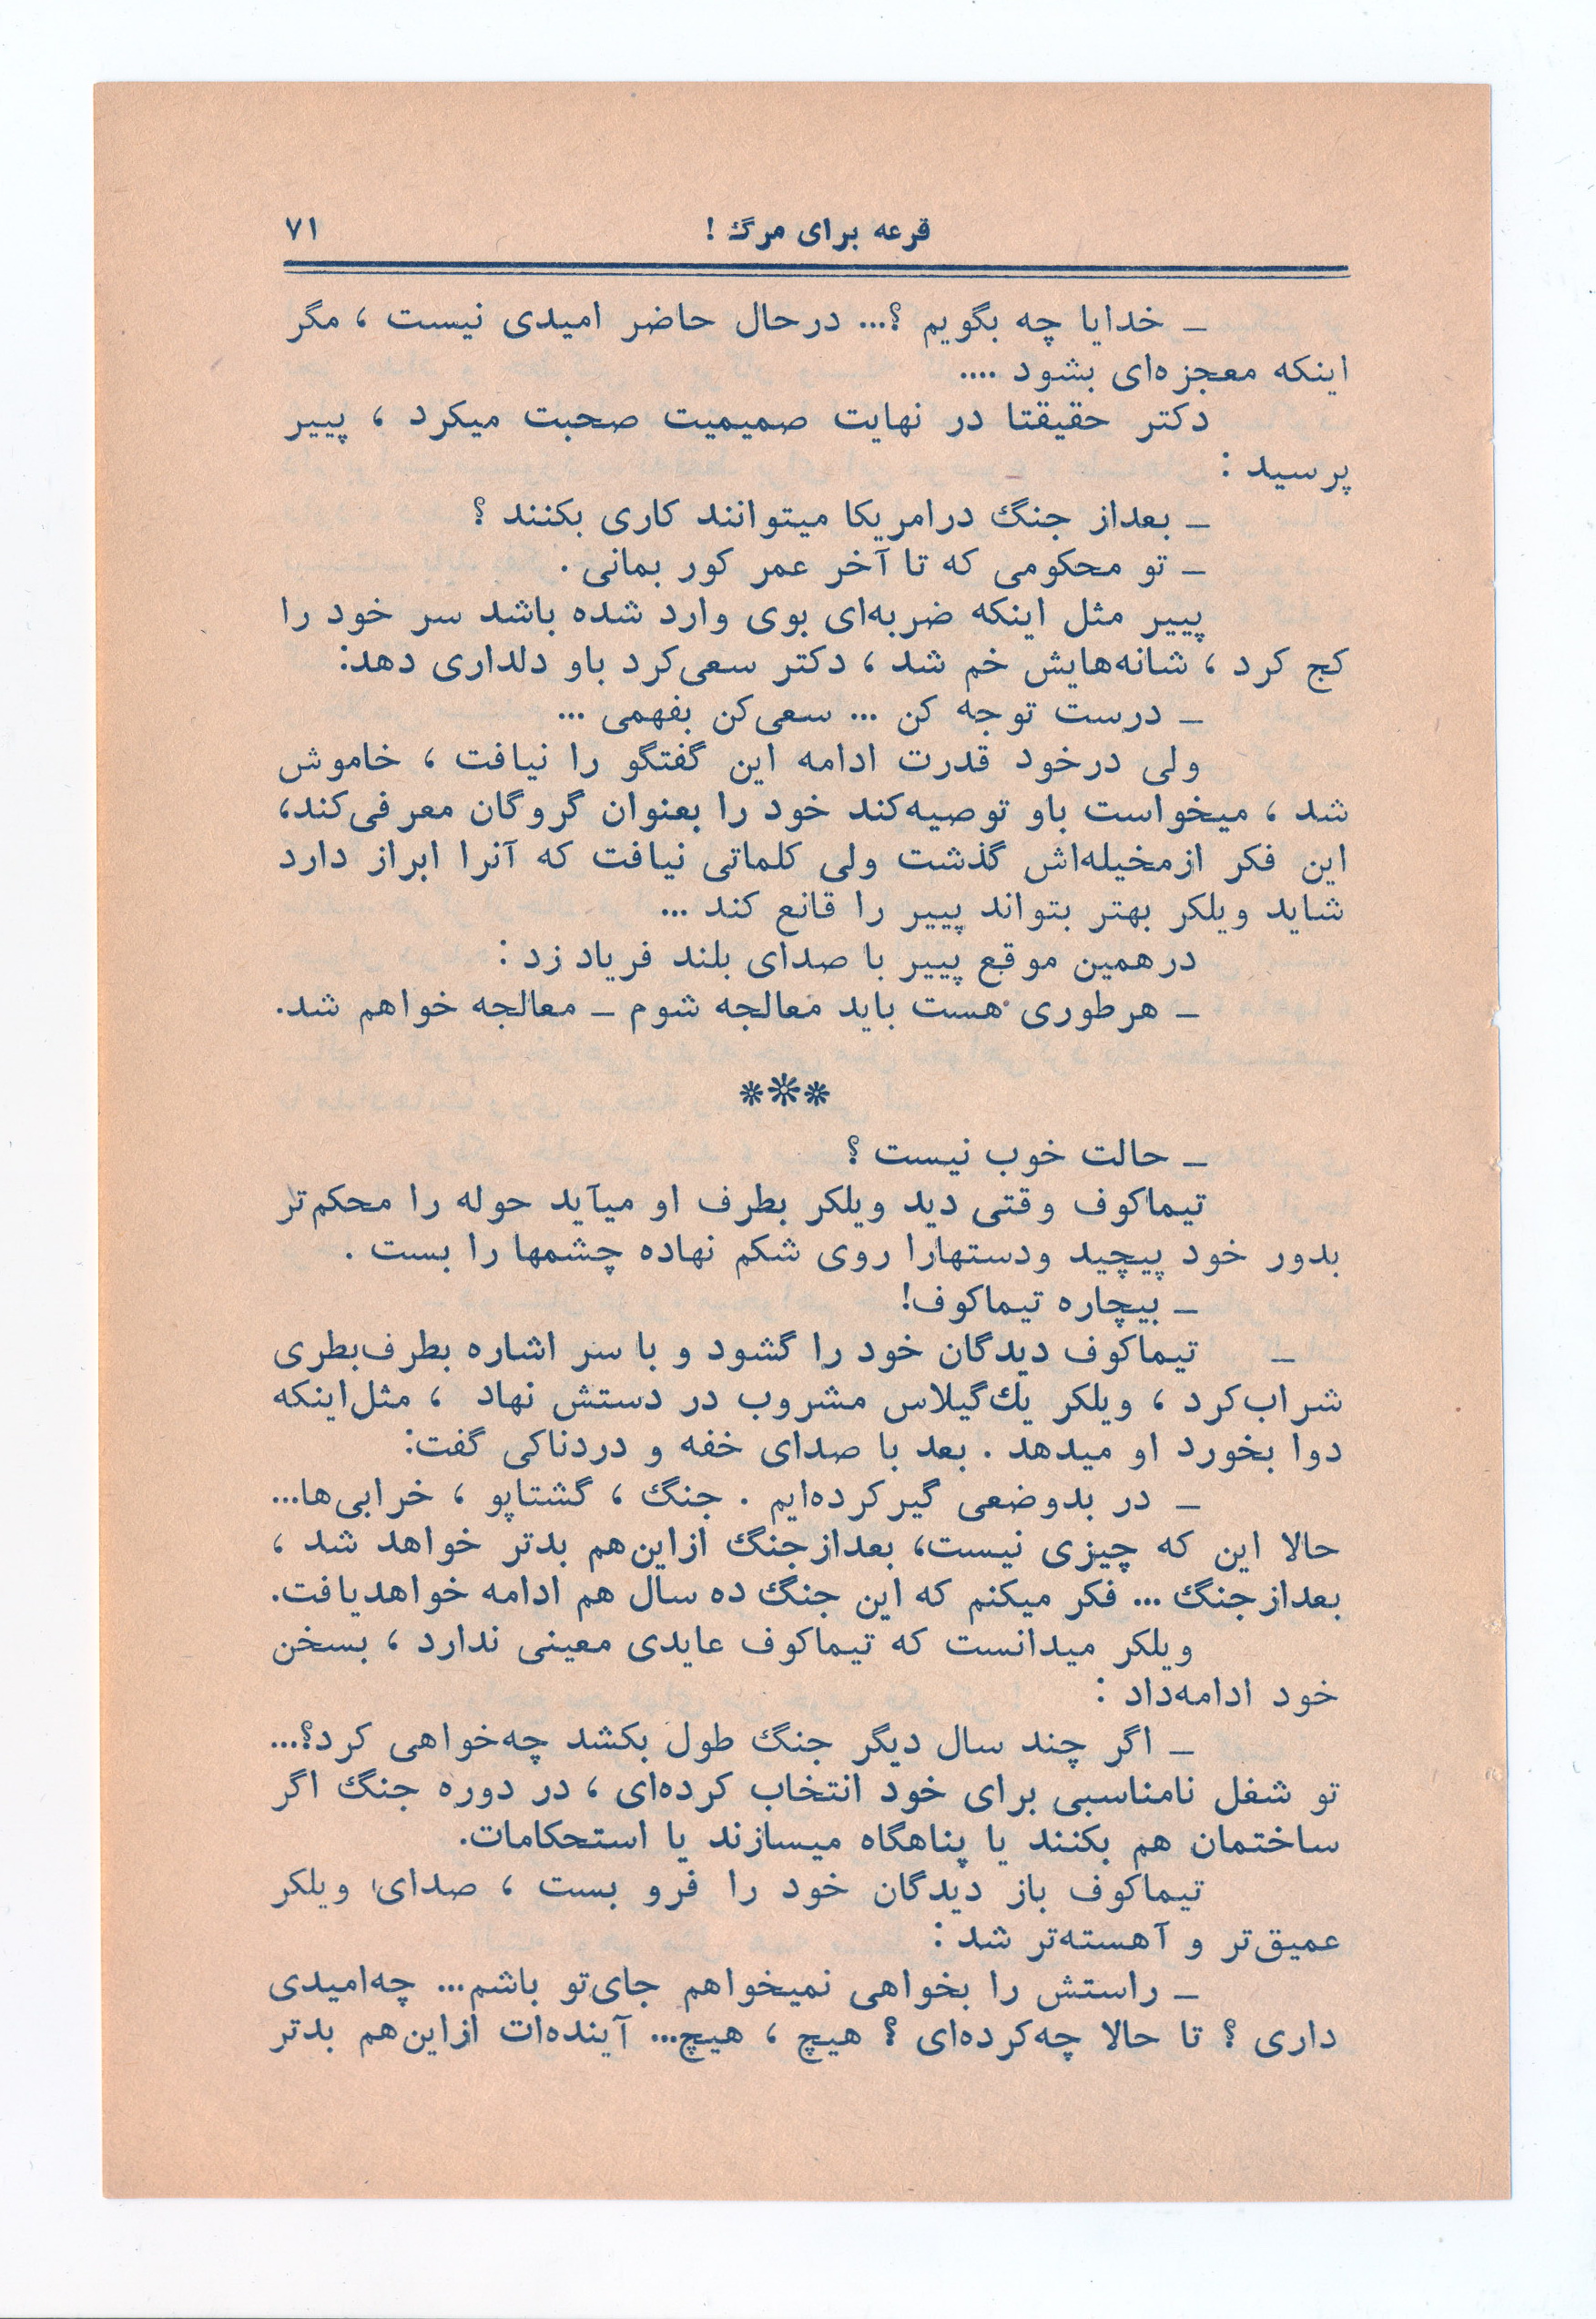 قرعه برای مرگ ! ۷۱
ـ خدایا چه بگویم ؟... درحال حاضر امیدی نیست ، مگر
اینکه معجزه‌ای بشود ....
دکتر حقیقتا در نهایت صمیمیت صحبت میکرد ، پییر
پرسید :
ـ بعداز جنگ درامریکا میتوانند کاری بکنند ؟
ـ تو محکومی که تا آخر عمر کور بمانی .
پییر مثل اینکه ضربه‌ای بوی وارد شده باشد سر خود را
کج کرد ، شانه‌هایش خم شد ، دکتر سعی‌کرد باو دلداری دهد:
ـ درست توجه کن ... سعی‌کن بفهمی ...
ولی درخود قدرت ادامه این گفتگو را نیافت ، خاموش
شد ، میخواست باو توصیه‌کند خود را بعنوان گروگان معرفی‌کند،
این فکر ازمخیله‌اش گذشت ولی کلماتی نیافت که آنرا ابراز دارد
شاید ویلکر بهتر بتواند پییر را قانع کند ...
درهمین موقع پییر با صدای بلند فریاد زد :
ـ هرطوری هست باید معالجه شوم ـ معالجه خواهم شد.
***
ـ حالت خوب نیست ؟
تیماکوف وقتی دید ویلکر بطرف او میآید حوله را محکم‌تر
بدور خود پیچید ودستهارا روی شکم نهاده چشمها را بست .
ـ بیچاره تیماکوف!
ـ تیماکوف دیدگان خود را گشود و با سر اشاره بطرف‌بطری
شراب‌کرد ، ویلکر یك‌گیلاس مشروب در دستش نهاد ، مثل‌اینکه
دوا بخورد او میدهد . بعد با صدای خفه و دردناکی گفت:
ـ در بدوضعی گیرکرده‌ایم . جنگ ، گشتاپو ، خرابی‌ها...
حالا این که چیزی نیست، بعدازجنگ ازاین‌هم بدتر خواهد شد ،
بعدازجنگ ... فکر میکنم که این جنگ ده سال هم ادامه خواهدیافت.
ویلکر میدانست که تیماکوف عایدی معینی ندارد ، بسخن
خود ادامه‌داد :
ـ اگر چند سال دیگر جنگ طول بکشد چه‌خواهی کرد؟...
تو شغل نامناسبی برای خود انتخاب کرده‌ای ، در دوره جنگ اگر
ساختمان هم بکنند یا پناهگاه میسازند یا استحکامات.
تیماکوف باز دیدگان خود را فرو بست ، صدای ویلکر
عمیق‌تر و آهسته‌تر شد :
ـ راستش را بخواهی نمیخواهم جای‌تو باشم... چه‌امیدی
داری ؟ تا حالا چه‌کرده‌ای ؟ هیچ ، هیچ... آینده‌ات ازاین‌هم بدتر